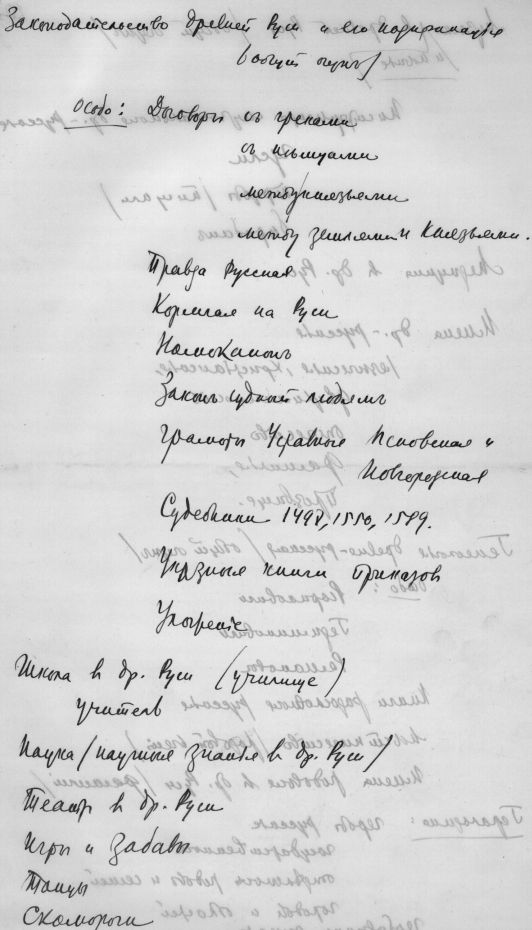 Законодательство древней Руси и его кодификация
(общий очерк)
особо: Договоры съ греками
съ немцами
между князьями
между землями и Князьями.
Правда Русская
Кормчая на Руси
Номоканонъ
Законъ судный людямъ
Грамоты Уставные Псковская и
Новгородская
Судебники 1497, 1550, 1589.
Указные книги Приказов
Уложение
Школа в др. Руси (училище)
учитель
Наука / научные знания в др. Руси /
Театр в др. Руси
Игры и Забавы
Танцы
Скоморохи